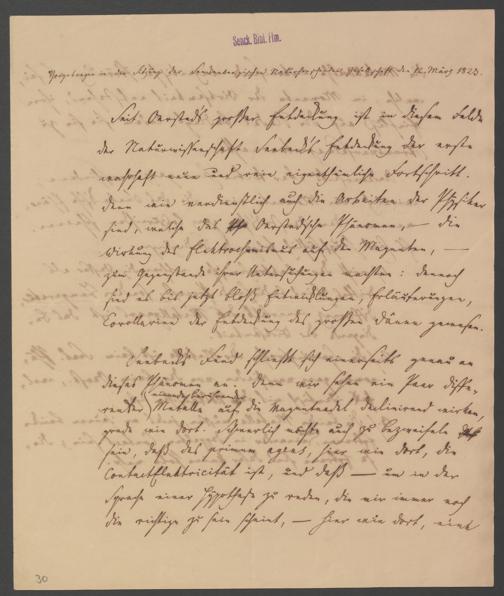 Senck. Bibl. Ffm.
Vorgetragen in der Sitzung der Senckenbergischen Naturforschenden Gesellschaft den 12. März 1823.
Seit Oersted's großer Entdeckung ist in diesem Felde
der Naturwissenschaft Seebeck's Entdeckung der erste
neue und rein eigenthümliche Fortschritt.
denn wie verdienstlich auch die Arbeiten der Physiker
sind, welche das Oerstedsche Phänomen, — die
Wirkung des Elektrochemismus auf die Magneten, —
zum Gegenstande ihrer Untersuchungen machten: dennoch
sind es bis jetzt bloß Entwicklungen, Erläuterungen,
Corollarien der Entdeckung des großen Dänen gewesen.
Seebeck's Fund schließt sich einerseits genau an
dieses Phänomen an: denn wir sehen ein Paar diffe-
render Metalle auf die Magnetnadel declinirend wirken,
grade wie dort. Schwerlich möchte auch zu bezweifeln
sein, daß das primum agens, hier wie dort, die
Contactelektricität ist, und daß — um in der
Sprache einer Hypothese zu reden, die mir immer noch
die richtige zu sein scheint, — hier wie dort, eine
30